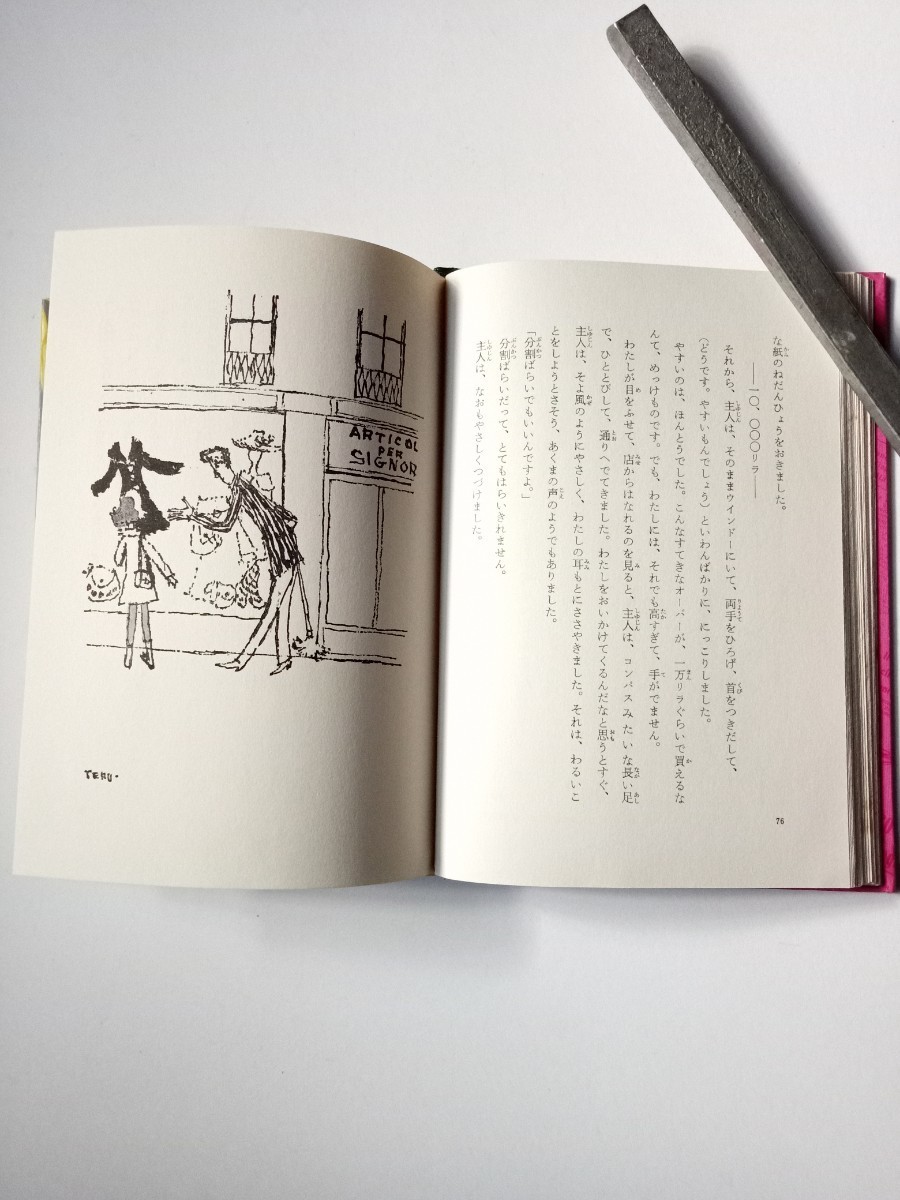 な紙のねだんひょうをおきました。
――一〇、〇〇〇リラ――
それから、主人は、そのままウインドーにいて、両手をひろげ、首をつきだして、
（どうです。やすいもんでしょう）といわんばかりに、にっこりしました。
やすいのは、ほんとうでした。こんなすてきなオーバーが、一万リラぐらいで買えるな
んて、めっけものです。でも、わたしには、それでも高すぎて、手がでません。
わたしが目をふせて、店からはなれるのを見ると、主人は、コンパスみたいな長い足
で、ひととびして、通りへでてきました。わたしをおいかけてくるんだなと思うとすぐ、
主人は、そよ風のようにやさしく、わたしの耳もとにささやきました。それは、わるいこ
とをしようとさそう、あくまの声のようでもありました。
「分割ばらいでもいいんですよ。」
分割ばらいだって、とてもはらいきれません。
主人は、なおもやさしくつづけました。
76
ARTICOL
PER
SIGNOR
TERU.